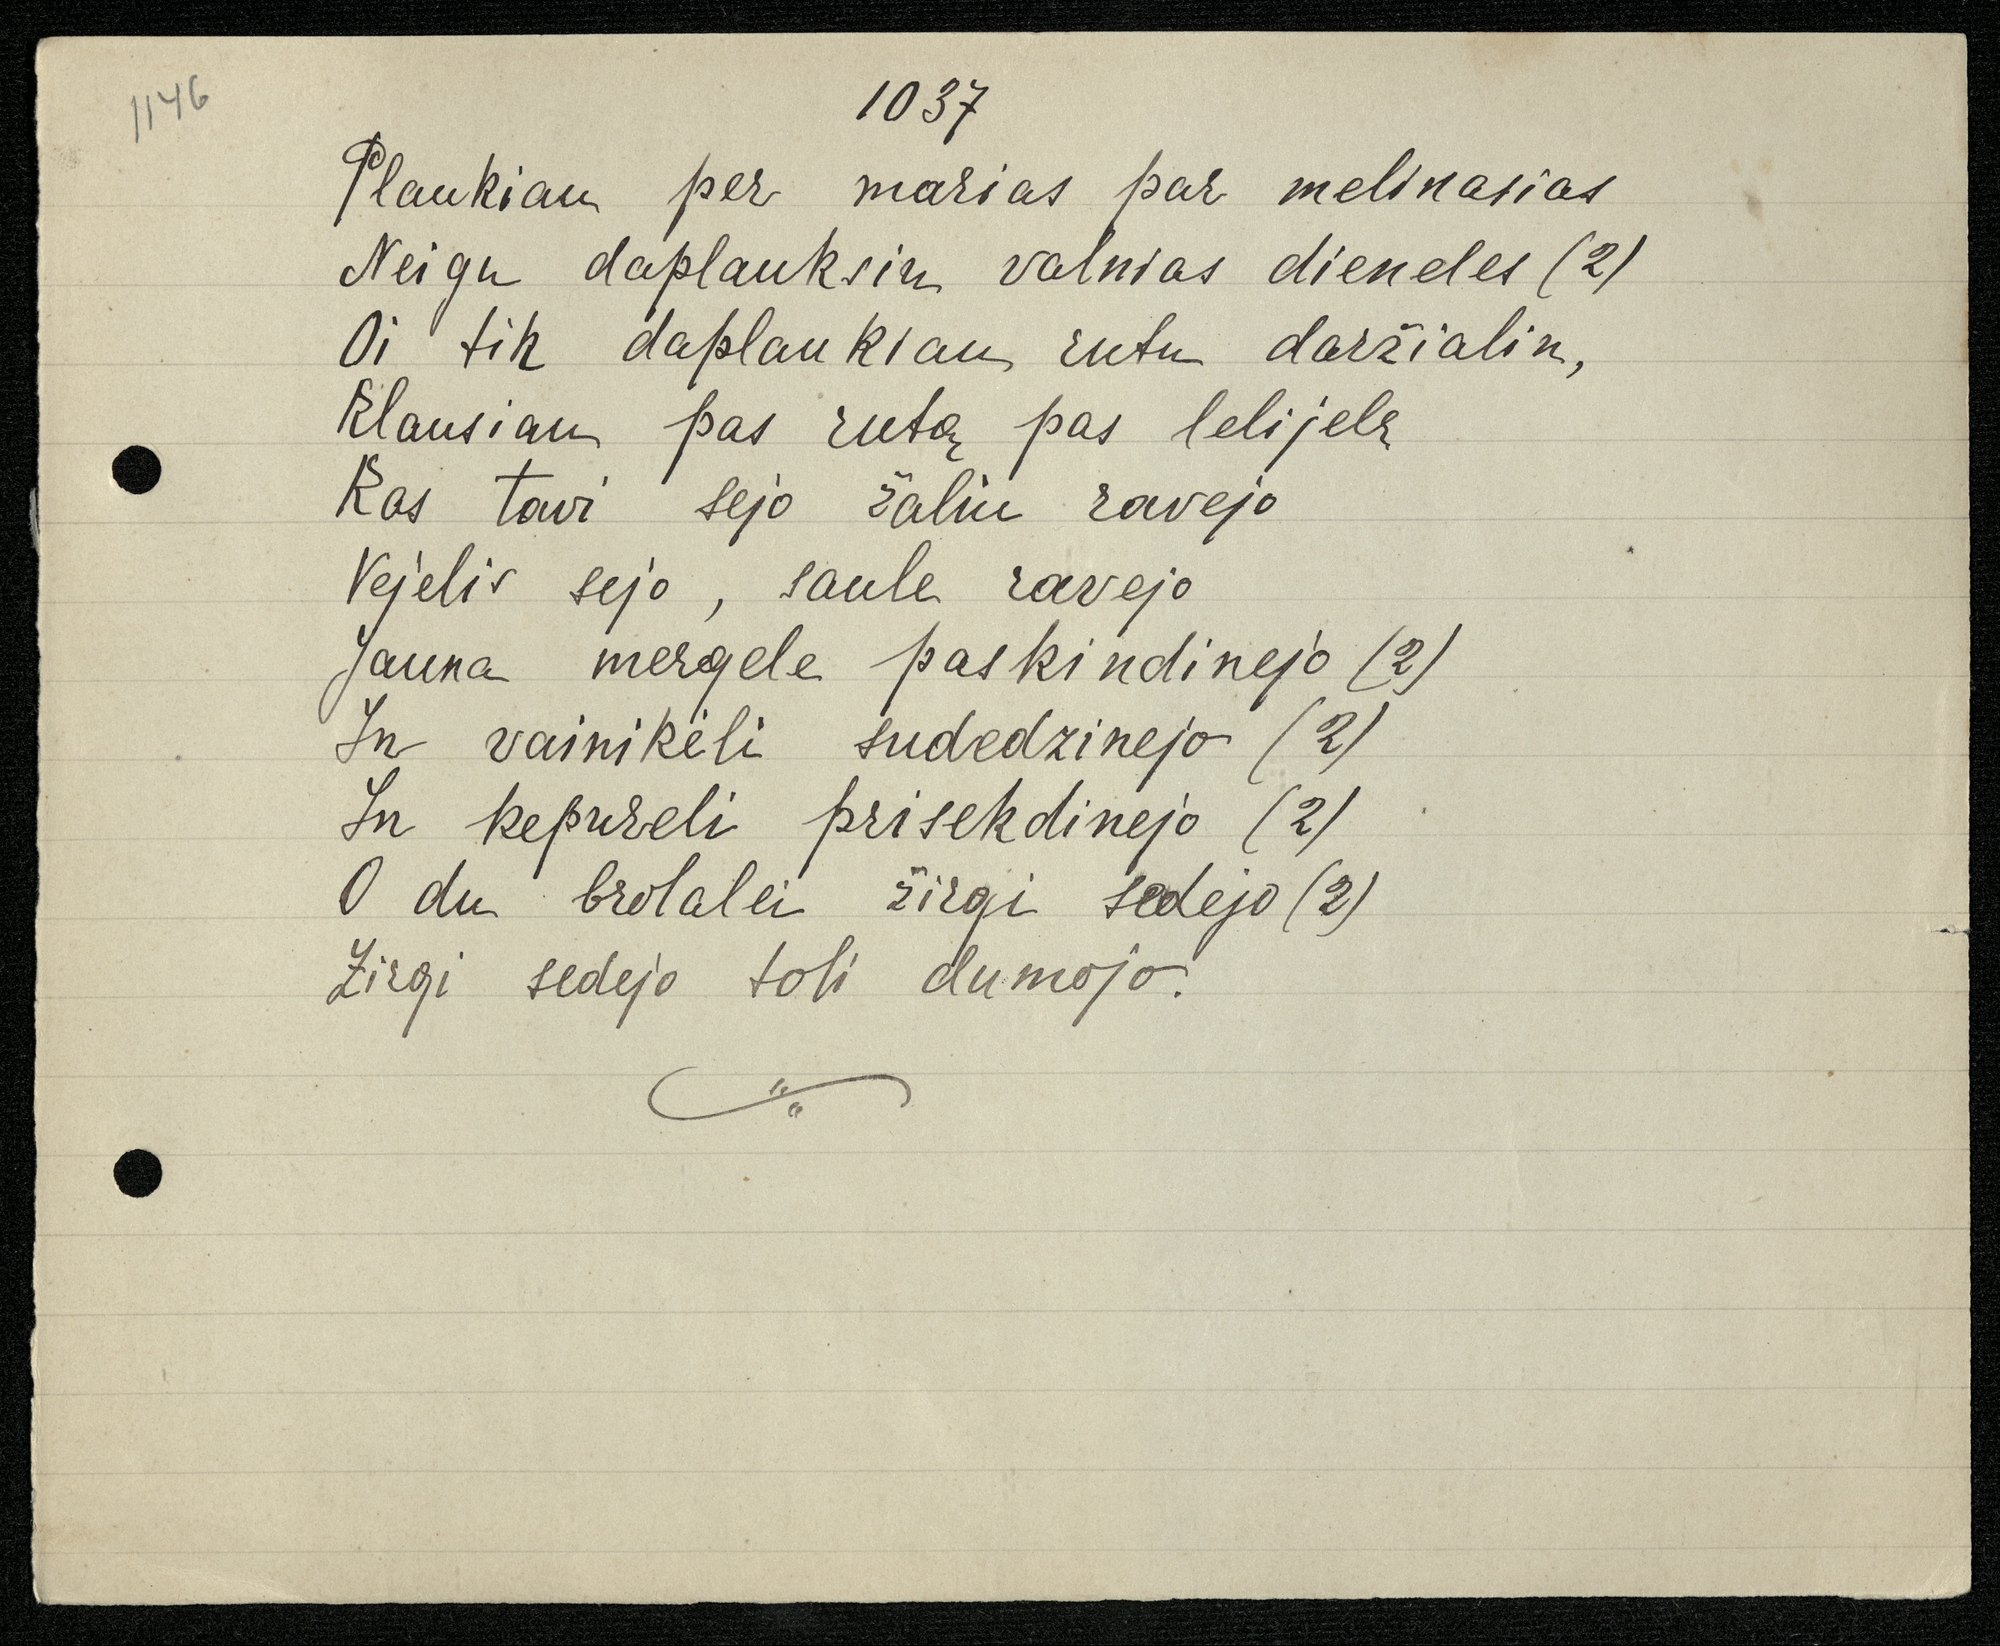 1146
1037
Plaukiau per marias par melinasias
Neigu daplauksiu valnias dieneles (2)
Oi tik daplaukiau rutu daržialin,
Klausiau pas rutą pas lelijelę
Kas tavi sejo žaliu ravejo
Vejelis sejo, saule ravejo
Jauna mergele paskindinejo (2)
In vainikėli sudedzinejo (2)
In kepureli prisekdinejo (2)
O du brolalei žirgi sedejo (2)
Žirgi sedejo toli dumojo.